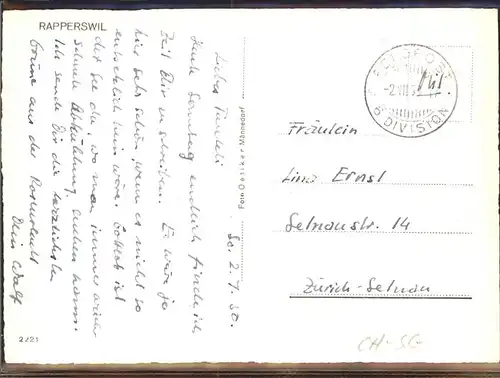 RAPPERSWIL
So. 2. 7. 50.
Liebes Tanteli
Auch Samstag endlich finde ich
Zeit Dir zu schreiben. Es wäre ja
hier sehr schön, wenn es nicht so
entsetzlich heiss wäre. Gottlob ist
der See da, wo man immer wieder
schnell Abkühlung suchen kann.
Ich sende Dir die herzlichsten
Grüsse aus der Rosenstadt
Dein Walf
2/21
Foto Oetiker Männedorf
FELDPOST
-2.VII.
6. DIVISION
Mil.
Fräulein
Lina Ernst
Selnaustr. 14
Zürich-Selnau
CH-SG